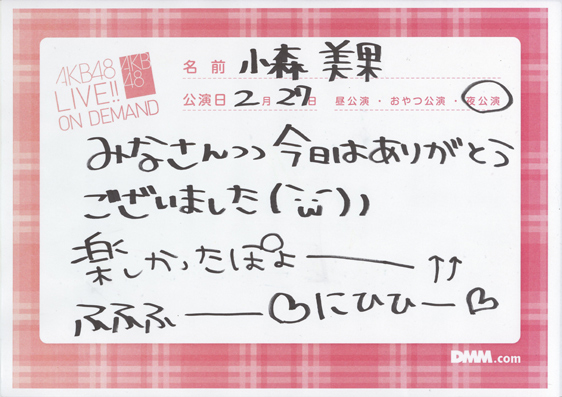 AKB48
LIVE!!
ON DEMAND
AKB
48
名前 小森 美果
公演日 2月 27日 昼公演・おやつ公演・夜公演
みなさんっっ 今日はありがとう
ございました(˘ω˘))
楽しかったぽよ――― ↑↑
ふふふ ――♡にひひー♡
DMM.com